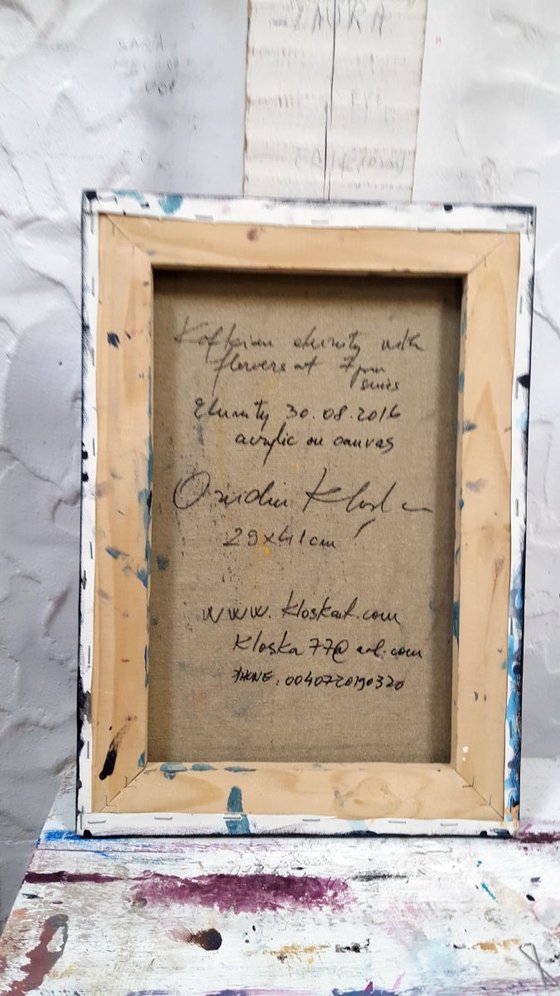 LAURA
Kafkian eternity with
flowers at 7pm
series
Eternity 30.08.2016
acrylic on canvas
Ovidiu Kloska
29x41cm
www.kloskart.com
Kloska77@aol.com
PHONE. 0040720190320